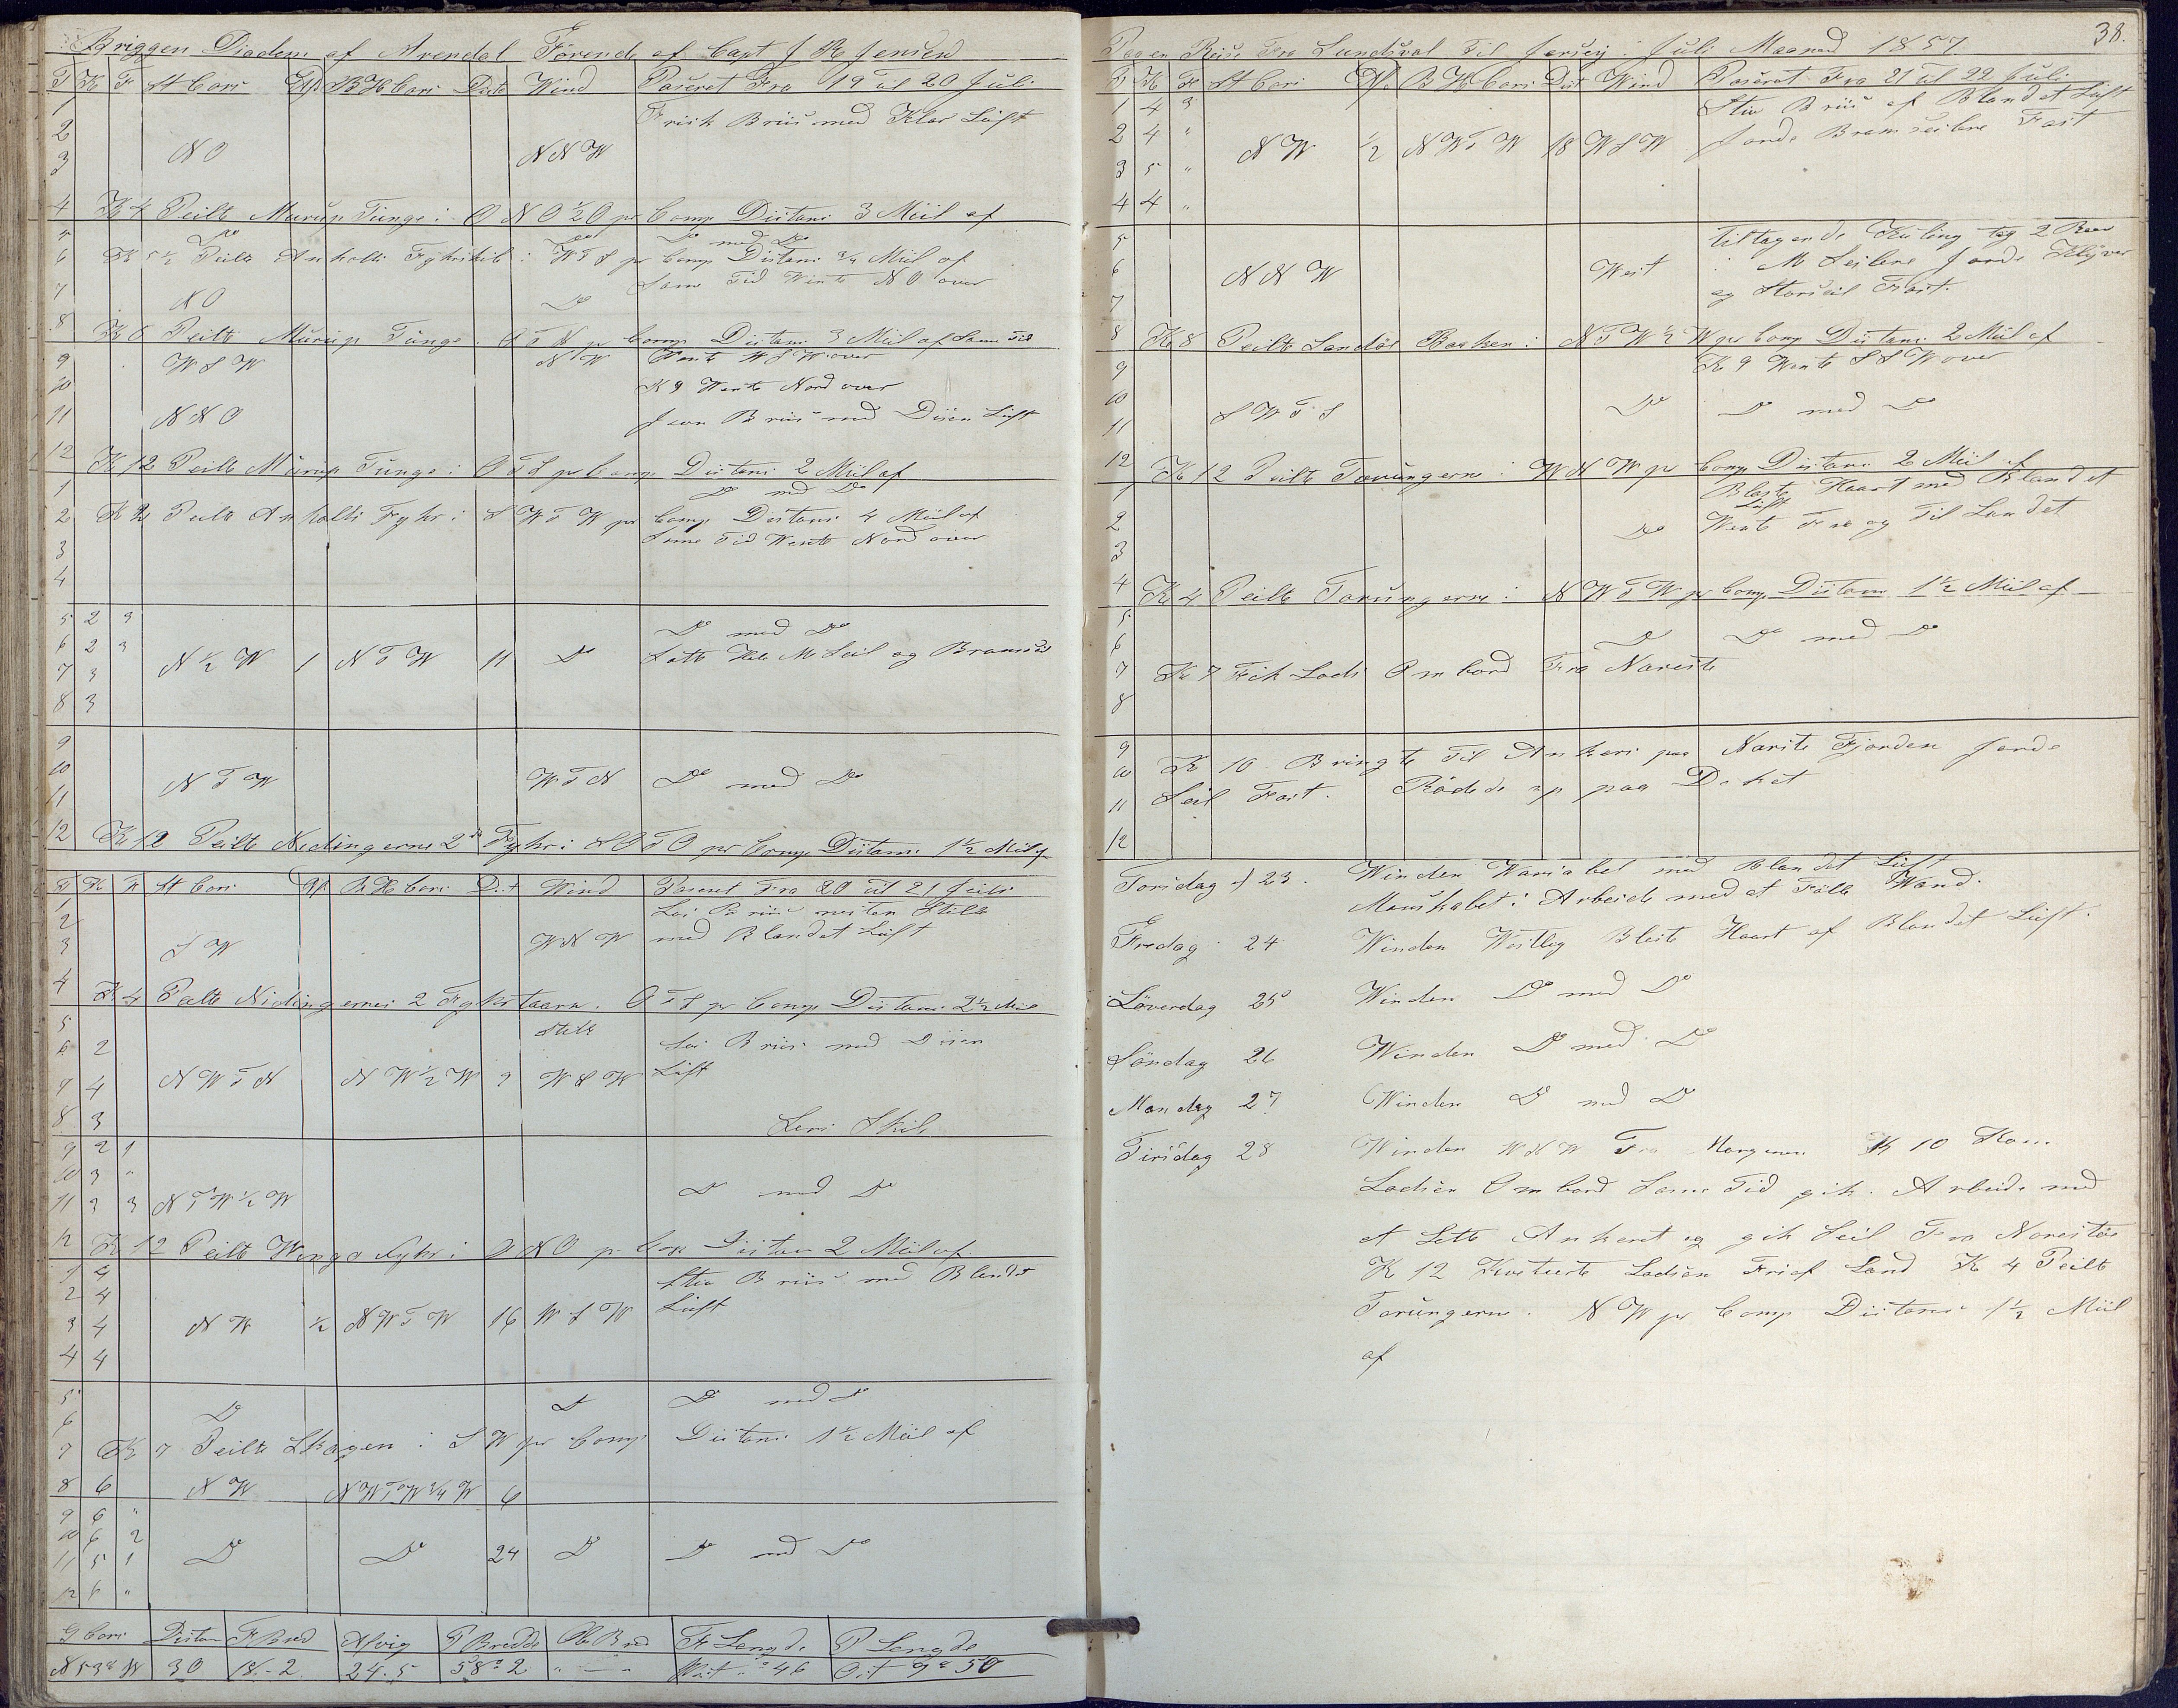 Briggen Diadem af Arendal Förende af Capt J R Jensen
T K F St Cors Afd B H Cors Dist Wind Paseret Fra 19 til 20 Juli
1 Frisk Briis med Klar Luft
2
3 N O N N W
4 K 4 Peilte Murup Tunge i O N O ½ O pr Comp Distans 3 Miil af
5 Do Do Do med Do
6 K 5½ Peilte Anholts Fyhrskib i W T S pr Comp Distans ¾ Miil af
Same Tid Wente N O over
7 N O Do
8 K 8 Peilte Murup Tunge O T N pr Comp Distans 3 Miil af Same Tid
9 W S W N W Wente W S W over
10 K 9 Wente Nord over
11 N N O Jævn Briis med Disen Luft
12 K 12 Peilte Murup Tunge i O T S pr Comp Distans 2 Miil af
1 Do med Do
2 K 2 Peilte Anholts Fyhr i S W T W pr Comp Distans 4 Miil af
3 Same Tid Wente Nord over
4
5 2 3 Do med Do
6 2 3 N ½ W 1 N T W 11 Do Satte Hele M Seil og Bramseil
7 3
8 3
9
10 N T W W T N Do med Do
11
12 K 12 Peilte Nidingerne 2de Fyhr i S O T O pr Comp Distans 1½ Miil af
T K F St Cors Afd B H Cors Dist Wind Paseret Fra 20 til 21 Juli
1 Lai Briis nesten Stille
2 med Blandet Luft
3 S W W N W
4 K 4 Peilte Nidingernes 2 Fyhrtaarn O T S pr Comp Distans 2½ Miil
5 Stille
6 2 Lai Briis med Disen
7 4 N W T N N W ½ W 9 W S W Luft
8 3 Lens Skib
9 2 1
10 3 "
11 3 3 N T W ½ W Do med Do
12 K 12 Peilte Wingo Fyhr i O N O pr Com Distans 2 Miil af
1 4 Stiv Briis med Blandet
2 4 Luft
3 4 N W ½ N W T W 16 W S W
4 4
5 Do Do Do med Do
6
7 K 7 Peilte Skagen i S W pr Comp Distans 1½ Miil af
8 6 N W N W T W ¾ W 6
9 6 "
10 6 2
11 5 1 Do Do 24 Do Do med Do
12 6 "
G Cors Distan F Bred Afvig P Bredde Ob Bred F Lengde P Lengde
N 53° W 30 18.-2 24.5 58° 2 " — " West " 46 Ost 9° 50
38.
Paa en Reise Fra Sundsval Til Jersey i Juli Maaned 1857
T K F St Cors Af B H Cors Dist Wind Paseret Fra 21 til 22 Juli
1 4 3 Stiv Briis af Blandet Luft
2 4 " N W ½ N W T W 18 W S W Jorde Bramseilene Fast
3 5 "
4 4 "
5 Tiltagende Kuling tog 2 Reev
6 N N W West i M Seilene Jorde Klyver
7 og Storseil Fast.
8 K 8 Peilte Sandös Baaken i N T W ½ W pr Comp Distans 2 Miil af
9 K 9 Wente S S W over
10 S W T S Do Do med Do
11
12 K 12 Peilte Torungerne i W N W pr Comp Distans 2 Miil af
1 Bleste Haart med Blandet
Luft
2 Do Wente Fra og Til Landet
3
4 K 4 Peilte Torungerne i N W T W pr Comp Distans 1½ Miil af
5
6 Do Do med Do
7 K 7 Fik Lods Ombord Fra Nareste
8
9
10 K 10 Bringte Til Ankers paa Narste Fjorden Jorde
11 Seil Fast. Rödede op paa Deket
12
Torsdag d 23. Winden Wariabel med Blandet Luft
Manskabet i Arbeide med at Fölle Wand.
Fredag 24 Winden Westlig Bleste Haart af Blandet Luft.
Löverdag 25 Winden Do med Do
Söndag 26 Winden Do med Do
Mandag 27 Winden Do med Do
Tirsdag 28 Winden W N W Fra Morgenen K 10 Kom
Lodsen Ombord Same Tid gik i Arbeide med
at Lette Ankeret og gik Seil Fra Narestöe
K 12 Kviterte Lodsen Fri af Land K 4 Peilte
Torungerne i N W pr Comp Distans 1½ Miil
af